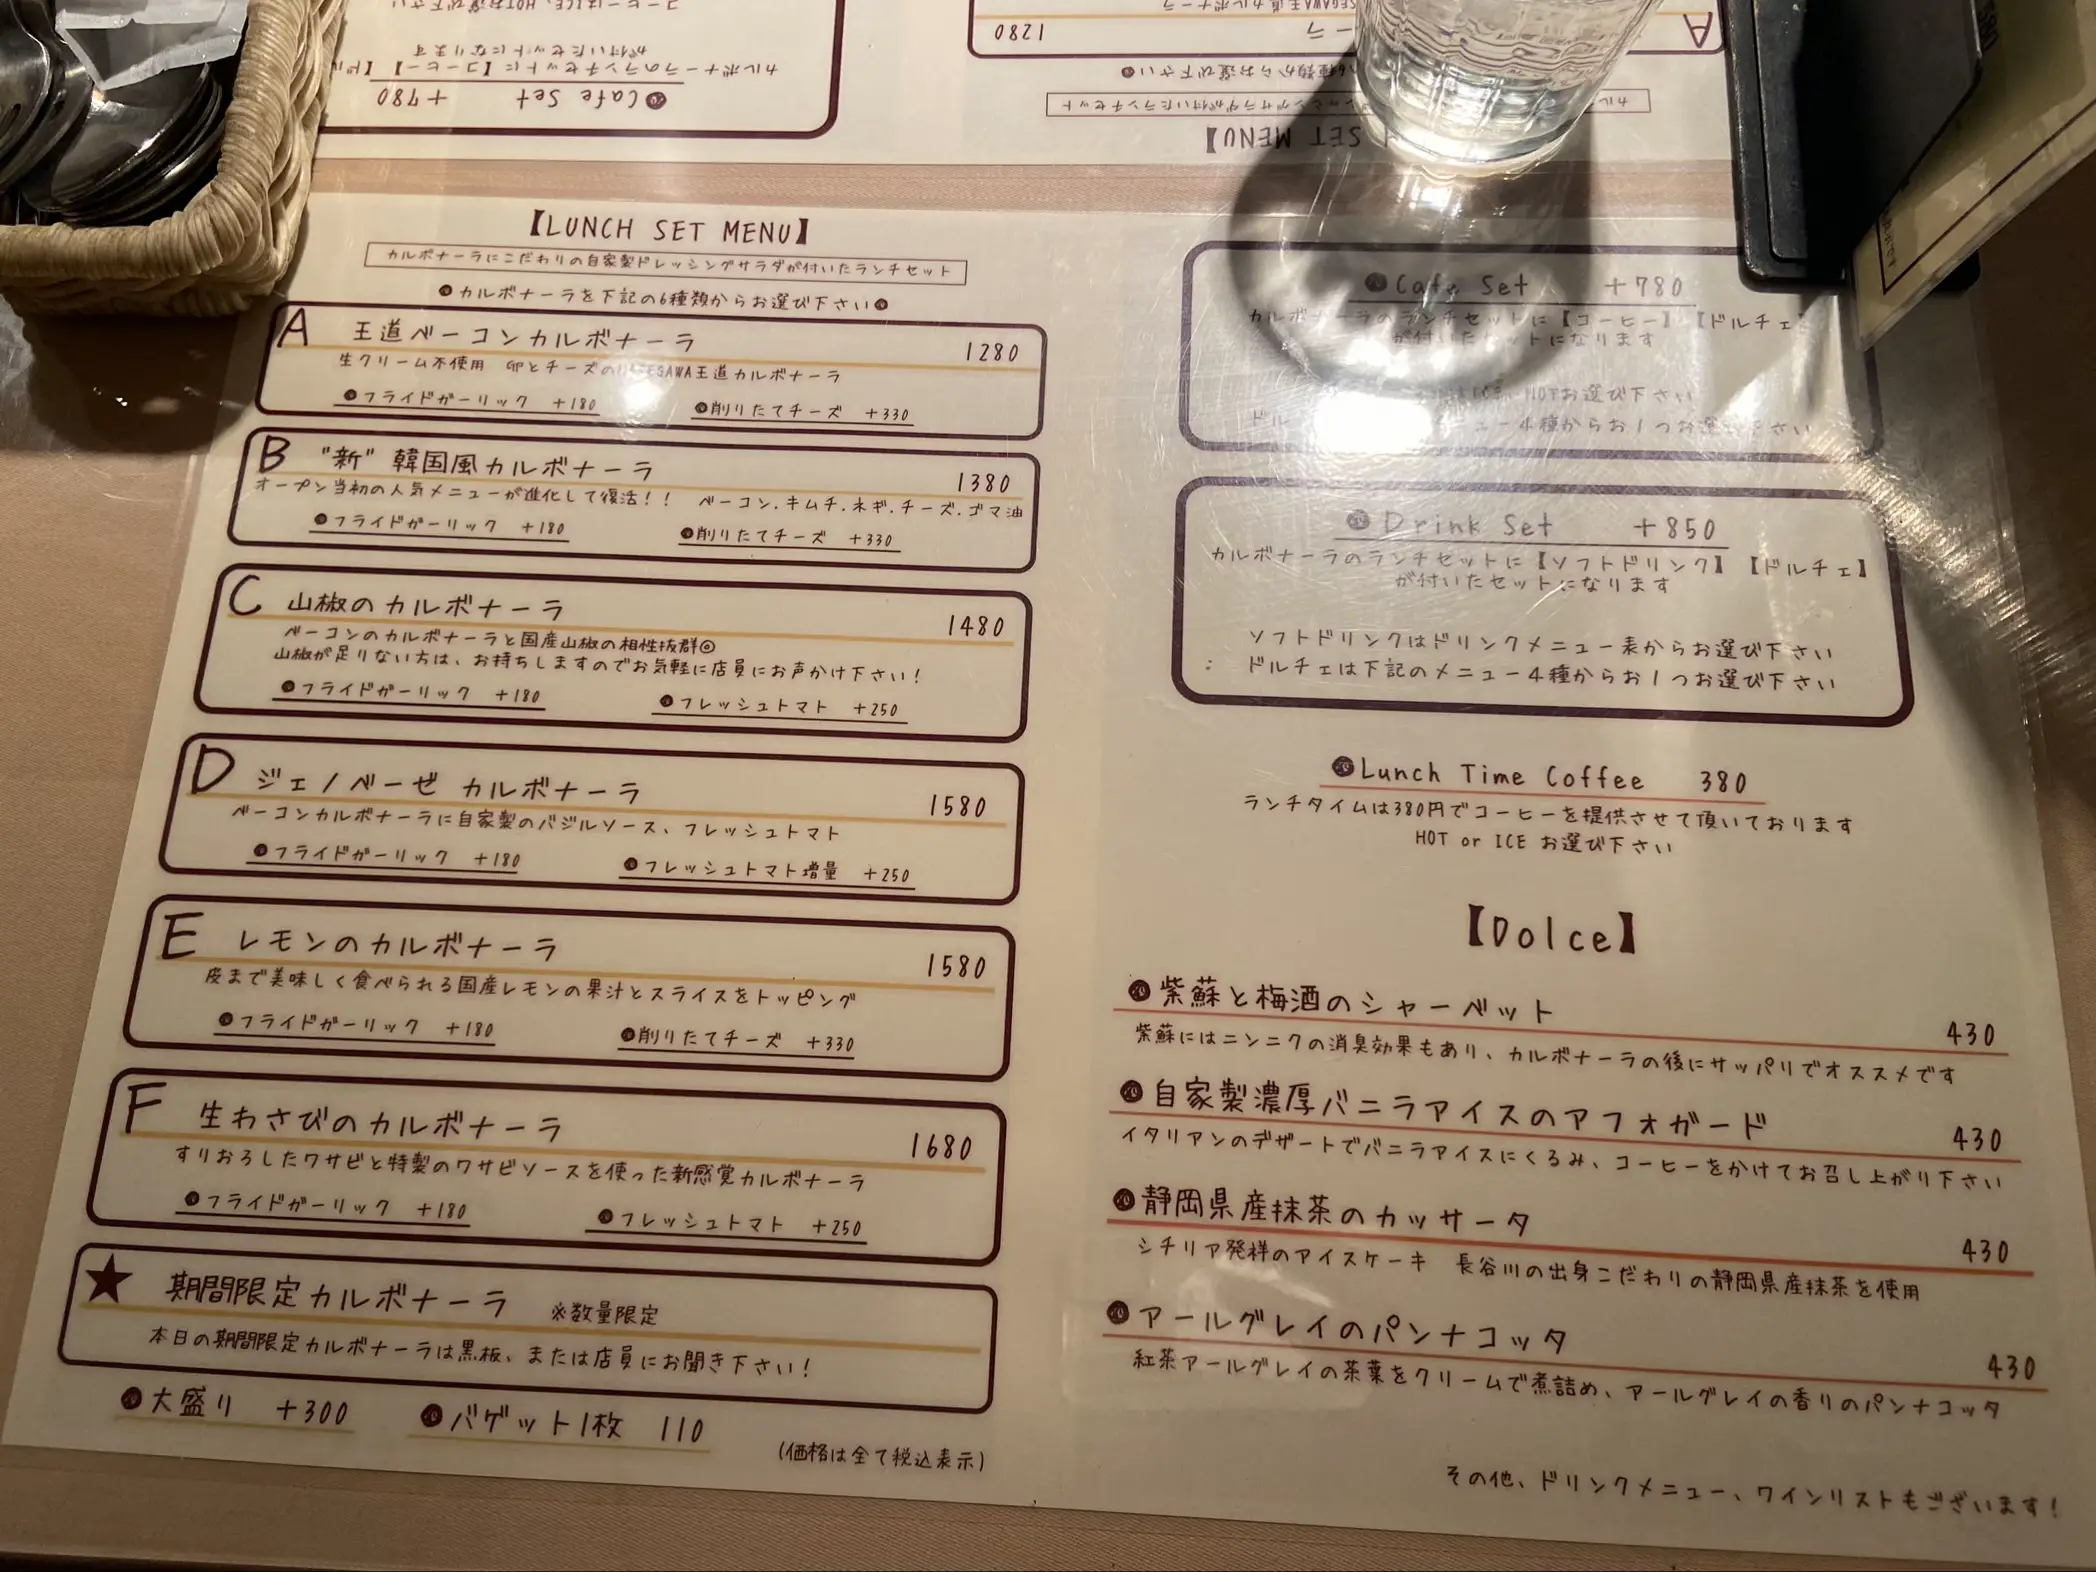 コーヒーはICE、HOTお選び下さい
カルボナーラのランチセットに【コーヒー】【ドル
が付いたセットになります
Cafe Set +780
A
1280
SET MENU】
【LUNCH SET MENU】
カルボナーラにこだわりの自家製ドレッシングサラダが付いたランチセット
カルボナーラを下記の6種類からお選び下さい
A 王道ベーコンカルボナーラ 1280
生クリーム不使用 卵とチーズの GAWA王道カルボナーラ
フライドガーリック +180 削りたてチーズ +330
B "新" 韓国風カルボナーラ 1380
オープン当初の人気メニューが進化して復活!! ベーコン.キムチ.ネギ.チーズ.ゴマ油
フライドガーリック +180 削りたてチーズ +330
C 山椒のカルボナーラ 1480
ベーコンのカルボナーラと国産山椒の相性抜群◎
山椒が足りない方は、お持ちしますのでお気軽に店員にお声かけ下さい!
フライドガーリック +180 フレッシュトマト +250
D ジェノベーゼ カルボナーラ 1580
ベーコンカルボナーラに自家製のバジルソース、フレッシュトマト
フライドガーリック +180 フレッシュトマト増量 +250
E レモンのカルボナーラ 1580
皮まで美味しく食べられる国産レモンの果汁とスライスをトッピング
フライドガーリック +180 削りたてチーズ +330
F 生わさびのカルボナーラ 1680
すりおろしたワサビと特製のワサビソースを使った新感覚カルボナーラ
フライドガーリック +180 フレッシュトマト +250
★ 期間限定カルボナーラ ※数量限定
本日の期間限定カルボナーラは黒板、または店員にお聞き下さい!
大盛り +300 バゲット1枚 110
(価格は全て税込表示)
Cafe Set +780
カルボナーラのランチセットに【コーヒー】【ドルチェ】
が付いたセットになります
ICE、HOTお選び下さい
ニュー4種からお1つお選び下さい
Drink Set +850
カルボナーラのランチセットに【ソフトドリンク】【ドルチェ】
が付いたセットになります
ソフトドリンクはドリンクメニュー表からお選び下さい
: ドルチェは下記のメニュー4種からお1つお選び下さい
Lunch Time Coffee 380
ランチタイムは380円でコーヒーを提供させて頂いております
HOT or ICE お選び下さい
【Dolce】
紫蘇と梅酒のシャーベット 430
紫蘇にはニンニクの消臭効果もあり、カルボナーラの後にサッパリでオススメです
自家製濃厚バニラアイスのアフォガード 430
イタリアンのデザートでバニラアイスにくるみ、コーヒーをかけてお召し上がり下さい
静岡県産抹茶のカッサータ 430
シチリア発祥のアイスケーキ 長谷川の出身こだわりの静岡県産抹茶を使用
アールグレイのパンナコッタ 430
紅茶アールグレイの茶葉をクリームで煮詰め、アールグレイの香りのパンナコッタ
その他、ドリンクメニュー、ワインリストもございます!